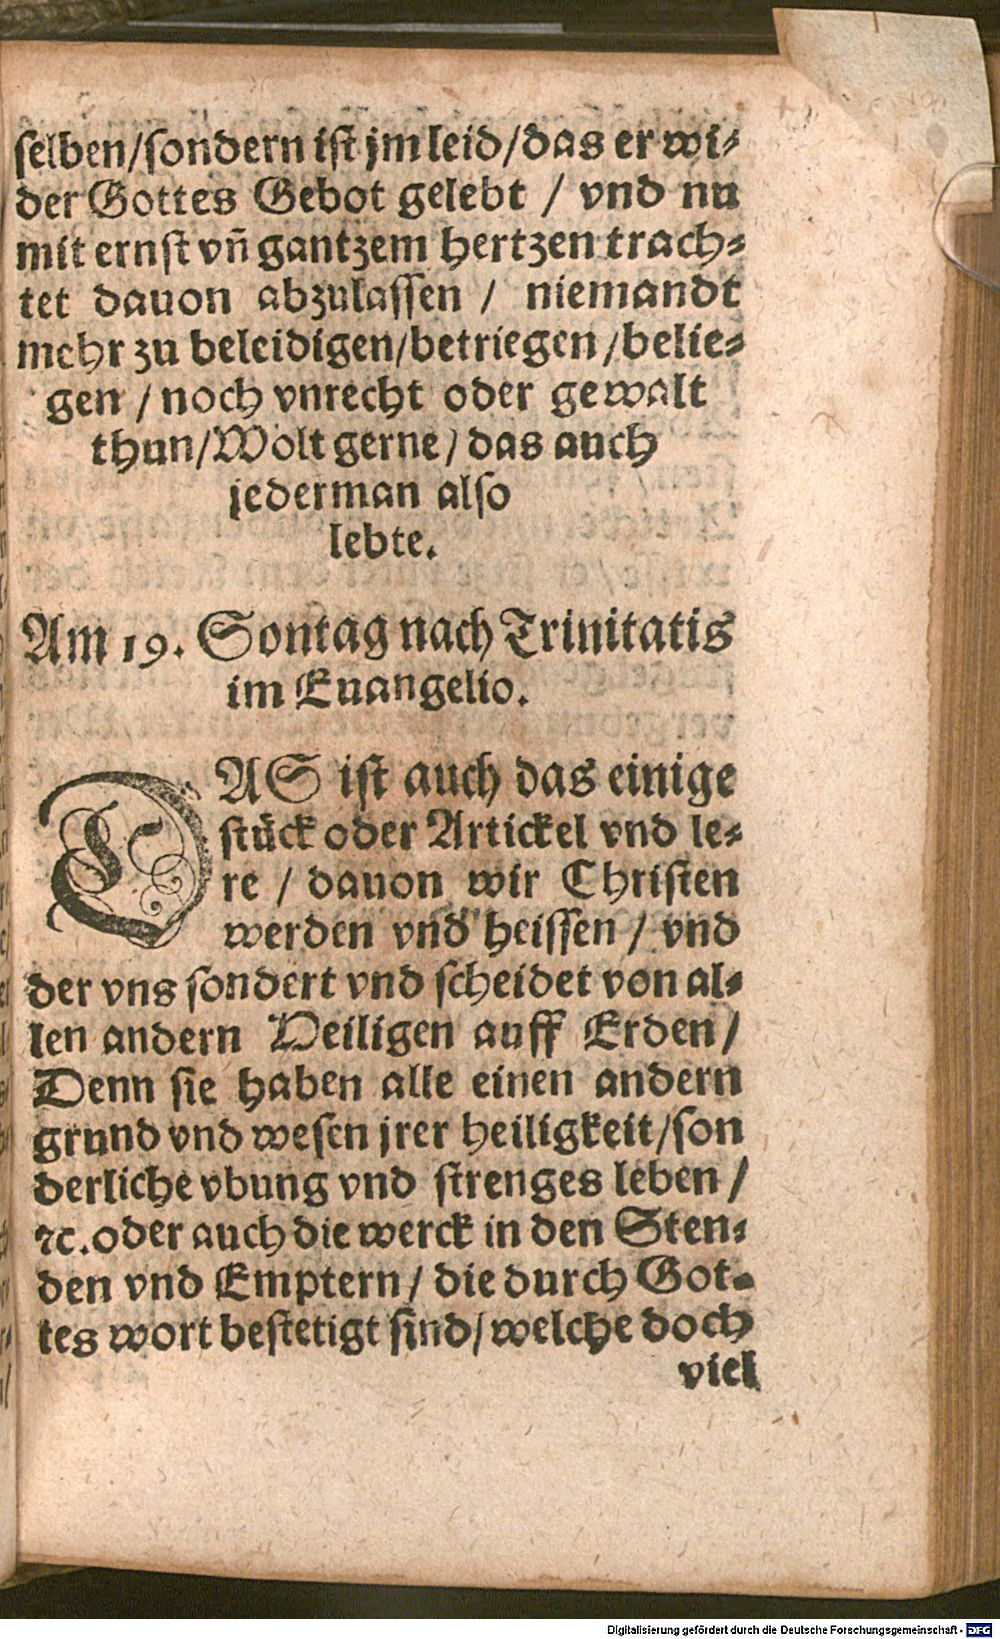 selben/sondern ist jm leid/das er wi-
der Gottes Gebot gelebt / vnd nu
mit ernst vn̄ gantzem hertzen trach-
tet dauon abzulassen / niemandt
mehr zu beleidigen/betriegen/belie-
gen / noch vnrecht oder gewalt
thun/Wolt gerne/das auch
jederman also
lebte.
Am 19. Sontag nach Trinitatis
im Euangelio.
DAS ist auch das einige
stück oder Artickel vnd le-
re / dauon wir Christen
werden vnd heissen / vnd
der vns sondert vnd scheidet von al-
len andern Heiligen auff Erden/
Denn sie haben alle einen andern
grund vnd wesen jrer heiligkeit/son
derliche vbung vnd strenges leben/
ꝛc. oder auch die werck in den Sten-
den vnd Emptern/die durch Got-
tes wort bestetigt sind/welche doch
viel
Digitalisierung gefördert durch die Deutsche Forschungsgemeinschaft - DFG